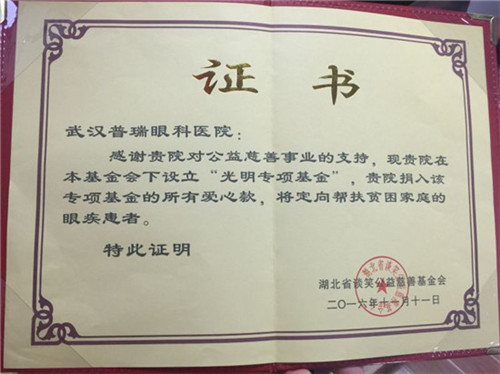 证书
武汉普瑞眼科医院：
感谢贵院对公益慈善事业的支持，现贵院在
本基金会下设立“光明专项基金”，贵院捐入该
专项基金的所有爱心款，将定向帮扶贫困家庭的
眼疾患者。
特此证明
湖北省谈笑公益慈善基金会
二〇一六年十一月十一日